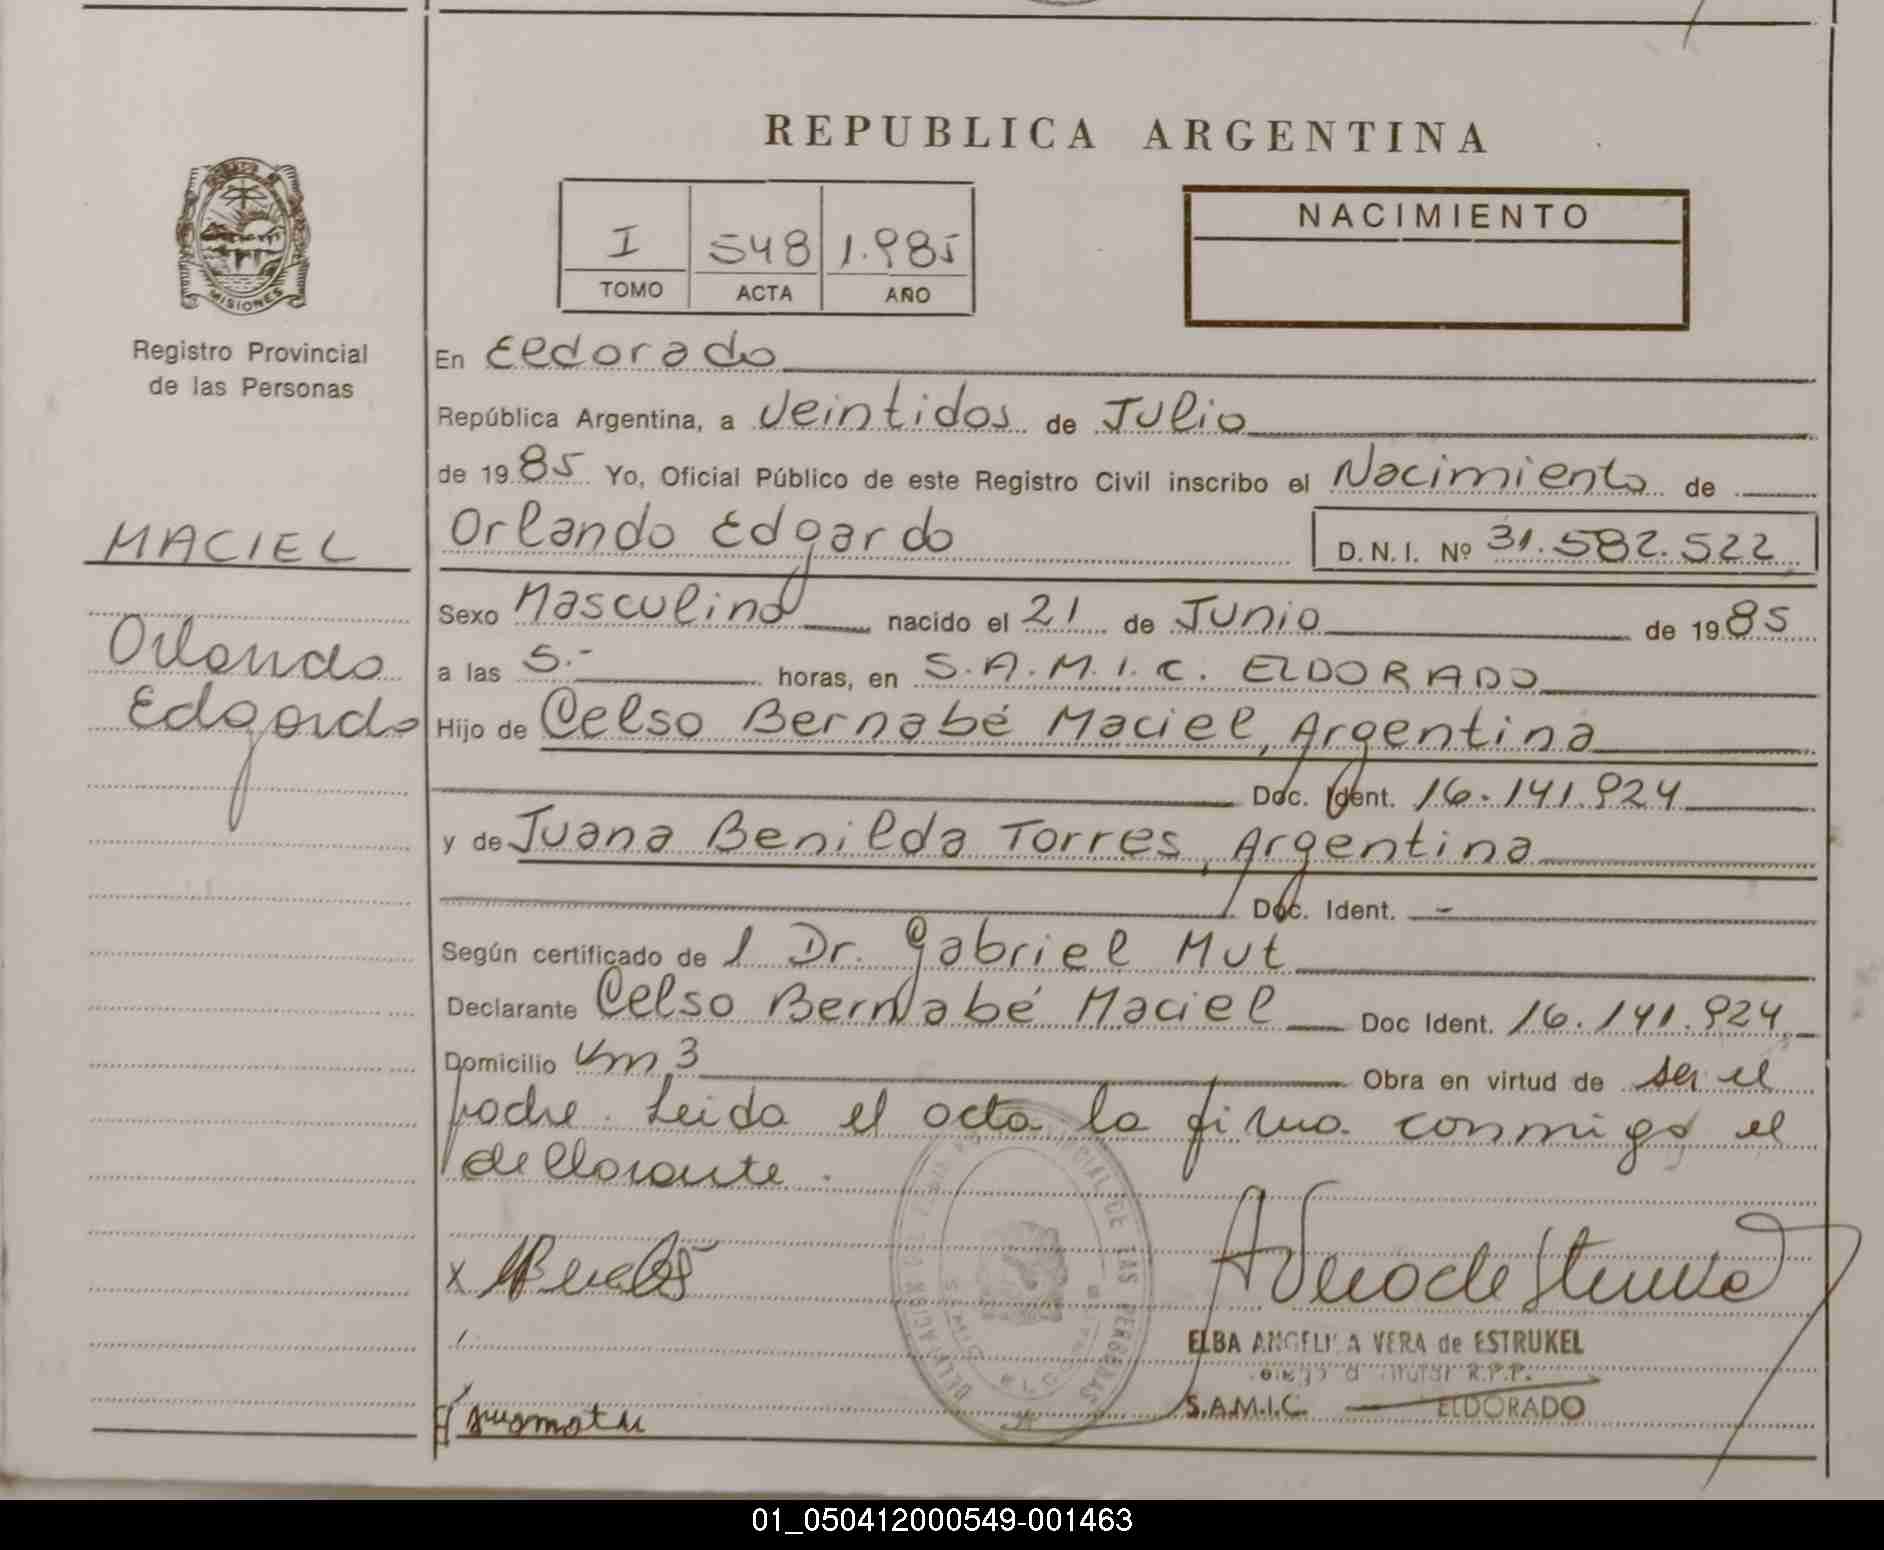 REPUBLICA ARGENTINA
MISIONES
Registro Provincial
de las Personas
I 548 1.985
TOMO ACTA AÑO
NACIMIENTO
En Eldorado
República Argentina, a Veintidos de Julio
de 1985 Yo, Oficial Público de este Registro Civil inscribo el Nacimiento de
MACIEL
Orlando Edgardo D.N.I. Nº 31.582.522
Orlando
Edgardo
Sexo Masculino nacido el 21 de Junio de 1985
a las 5.- horas, en S.A.M.I.C. ELDORADO
Hijo de Celso Bernabé Maciel, Argentina
Doc. Ident. 16.141.924
y de Juana Benilda Torres, Argentina
Doc. Ident. -
Según certificado de l Dr. Gabriel Mut
Declarante Celso Bernabé Maciel Doc Ident. 16.141.924
Domicilio Km 3 Obra en virtud de ser el
padre. Leida el acta la firma conmigo el
declarante.
X
ELBA ANGELICA VERA de ESTRUKEL
R.P.P.
S.A.M.I.C. ELDORADO
01_050412000549-001463